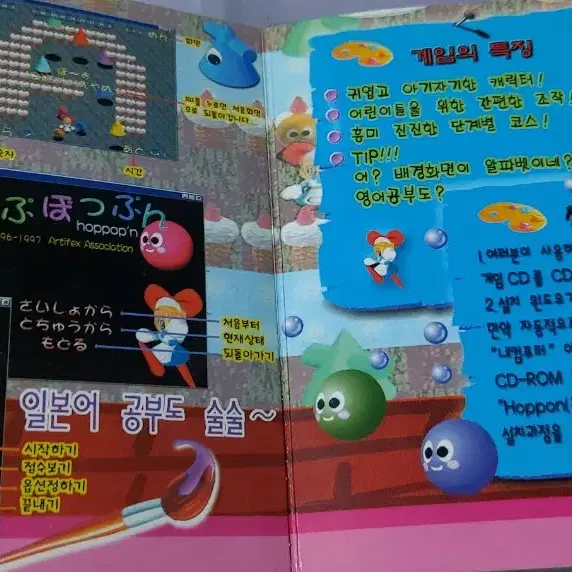 화면
를 누르면 처음화면
으로 되돌아갑니다
시간
ぷぽつぷん
hoppop'n
96-1997 Artifex Association
さいしょから
とちゅうから
もどる
처음부터
현재상태
되돌아가기
일본어 공부도 술술~
시작하기
점수보기
옵션정하기
끝내기
게임의 특징
귀엽고 아기자기한 캐릭터!
어린이들을 위한 간편한 조작!
흥미 진진한 단계별 코스!
TIP!!!
어? 배경화면이 알파벳이네?
영어공부도?
1.여러분이 사용하
게임 CD를 CD
2.설치 윈도우가
만약 자동적으로
"내컴퓨터"
CD-ROM
"Hoppon(
설치과정을